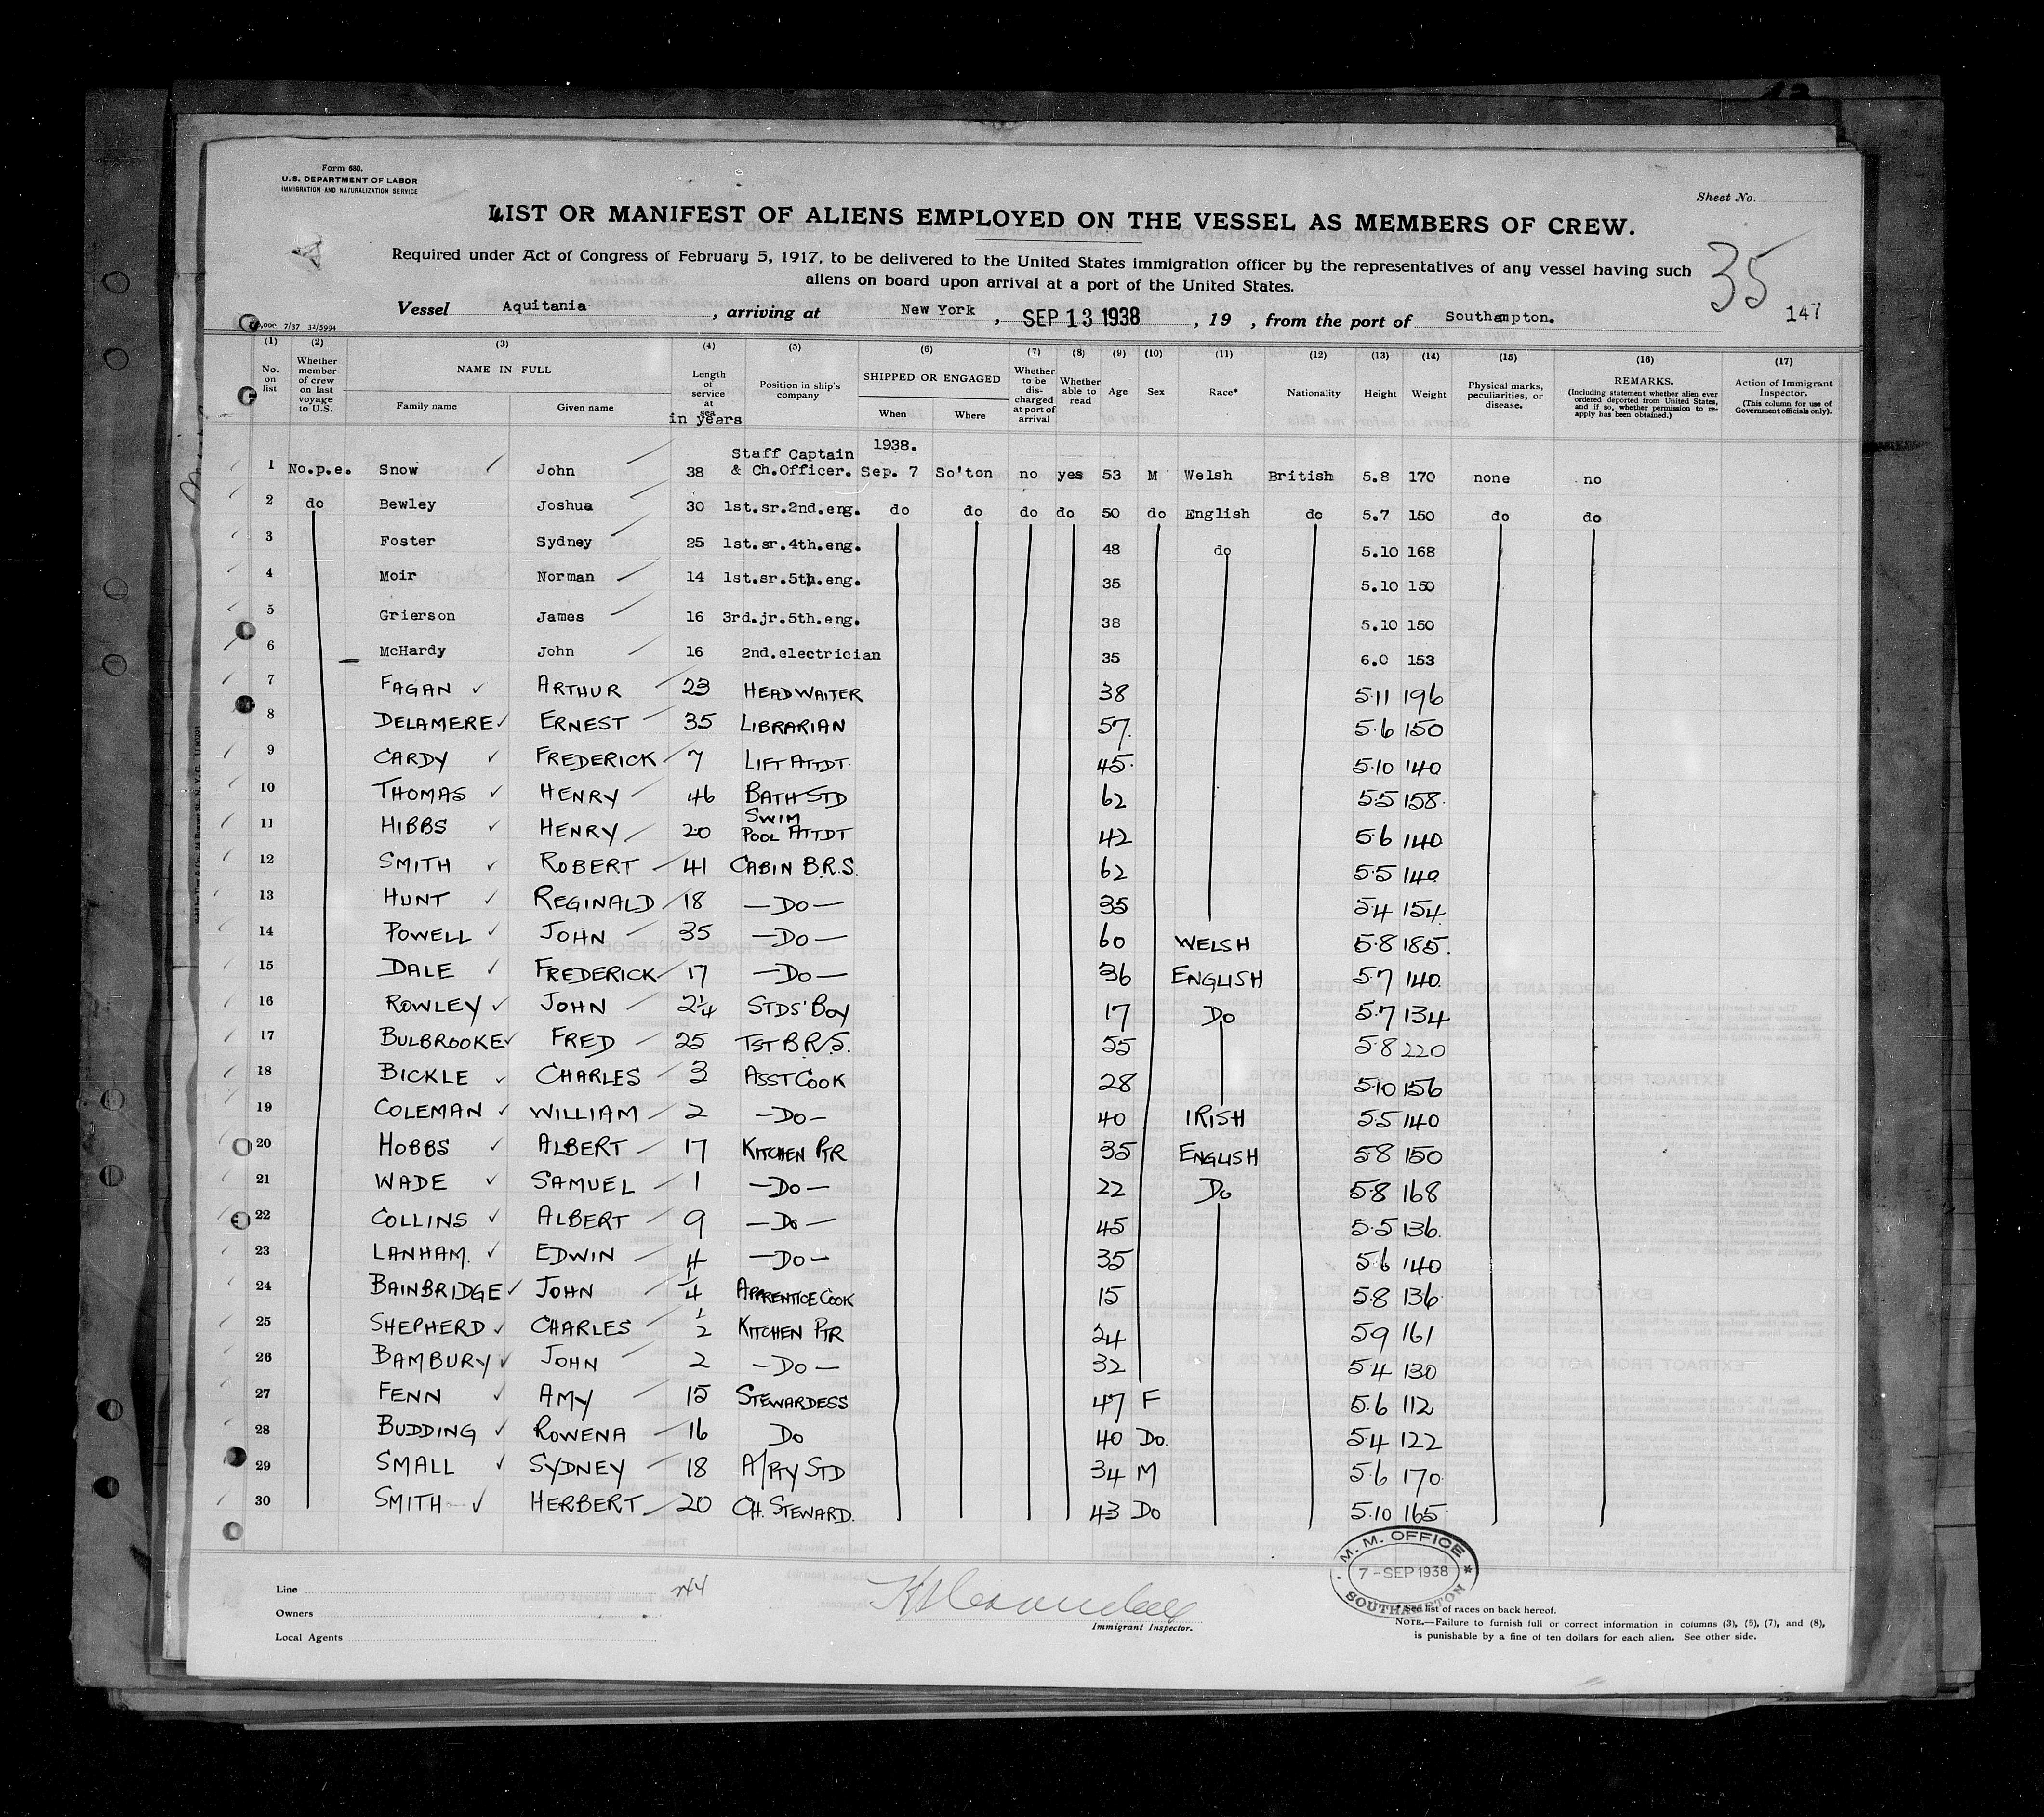 Form 680.
U.S. DEPARTMENT OF LABOR
IMMIGRATION AND NATURALIZATION SERVICE
Sheet No.
LIST OR MANIFEST OF ALIENS EMPLOYED ON THE VESSEL AS MEMBERS OF CREW.
Required under Act of Congress of February 5, 1917, to be delivered to the United States immigration officer by the representatives of any vessel having such
aliens on board upon arrival at a port of the United States.
35
147
Vessel Aquitania, arriving at New York, SEP 13 1938, 19 , from the port of Southampton.
7/37 32/5994
(1) No. on list (2) Whether member of crew on last voyage to U.S. (3) NAME IN FULL Family name Given name (4) Length of service at sea in years (5) Position in ship's company (6) SHIPPED OR ENGAGED When Where (7) Whether to be discharged at port of arrival (8) Whether able to read (9) Age (10) Sex (11) Race* (12) Nationality (13) Height (14) Weight (15) Physical marks, peculiarities, or disease. (16) REMARKS. (Including statement whether alien ever ordered deported from United States, and if so, whether permission to re-apply has been obtained.) (17) Action of Immigrant Inspector. (This column for use of Government officials only).
1938.
1 No.p.e. Snow John 38 Staff Captain & Ch.Officer. Sep. 7 So'ton no yes 53 M Welsh British 5.8 170 none no
2 do Bewley Joshua 30 1st.sr.2nd.eng. do do do do 50 do English do 5.7 150 do do
3 Foster Sydney 25 1st.sr.4th.eng. 48 do 5.10 168
4 Moir Norman 14 1st.sr.5th.eng. 35 5.10 150
5 Grierson James 16 3rd.jr.5th.eng. 38 5.10 150
6 McHardy John 16 2nd.electrician 35 6.0 153
7 FAGAN ✓ ARTHUR 23 HEAD WAITER 38 5·11 196
8 DELAMERE ✓ ERNEST 35 LIBRARIAN 57. 5·6 150
9 CARDY ✓ FREDERICK 7 LIFT ATTDT. 45. 5·10 140
10 THOMAS ✓ HENRY 46 BATH STD 62 5·5 158.
11 HIBBS ✓ HENRY 20 SWIM POOL ATTDT 42 5·6 140
12 SMITH ✓ ROBERT 41 CABIN B.R.S. 62 5·5 140
13 HUNT ✓ REGINALD 18 —DO— 35 5·4 154.
14 POWELL ✓ JOHN 35 —DO— 60 WELSH 5·8 185.
15 DALE ✓ FREDERICK 17 —DO— 36 ENGLISH 5·7 140.
16 ROWLEY ✓ JOHN 2¼ STDS' BOY 17 DO 5·7 134
17 BULBROOKE ✓ FRED 25 TST B.R.S. 55 5·8 220
18 BICKLE ✓ CHARLES 3 ASST COOK 28 5·10 156
19 COLEMAN ✓ WILLIAM 2 —DO— 40 IRISH 5·5 140
20 HOBBS ✓ ALBERT 17 KITCHEN PTR 35 ENGLISH 5·8 150
21 WADE ✓ SAMUEL 1 —DO— 22 DO 5·8 168
22 COLLINS ✓ ALBERT 9 —DO— 45 5·5 136.
23 LANHAM. ✓ EDWIN 4 —DO— 35 5·6 140
24 BAINBRIDGE ✓ JOHN ¼ APPRENTICE COOK 15 5·8 136
25 SHEPHERD ✓ CHARLES ½ KITCHEN PTR 24 5·9 161
26 BAMBURY ✓ JOHN 2 —DO— 32 5·4 130
27 FENN ✓ AMY 15 STEWARDESS 47 F 5·6 112
28 BUDDING ✓ ROWENA 16 DO 40 DO. 5·4 122
29 SMALL ✓ SYDNEY 18 A/PTY STD 34 M 5·6 170.
30 SMITH ✓ HERBERT 20 CH. STEWARD. 43 DO 5·10 165.
M. M. OFFICE
7 - SEP 1938
SOUTHAMPTON
Line
Owners
Local Agents
Immigrant Inspector.
* See list of races on back hereof.
NOTE.—Failure to furnish full or correct information in columns (3), (5), (7), and (8),
is punishable by a fine of ten dollars for each alien. See other side.